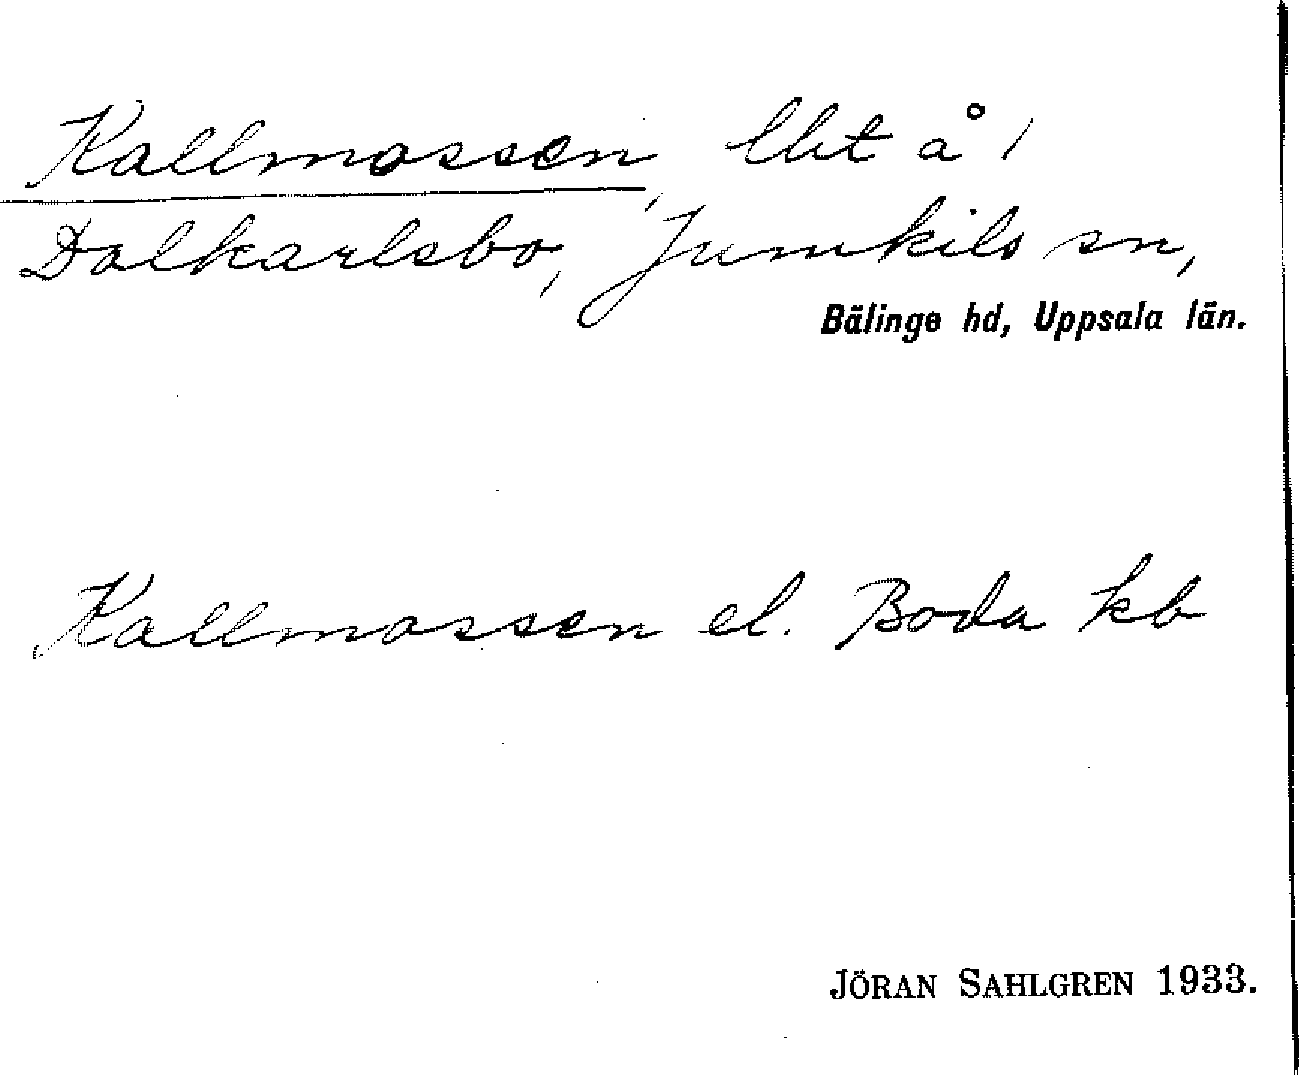 Kallmossen, lht å 1
Dalkarlsbo, Jumkils sn,
Bälinge hd, Uppsala län.
Kallmossen el. Boda kb
JÖRAN SAHLGREN 1933.